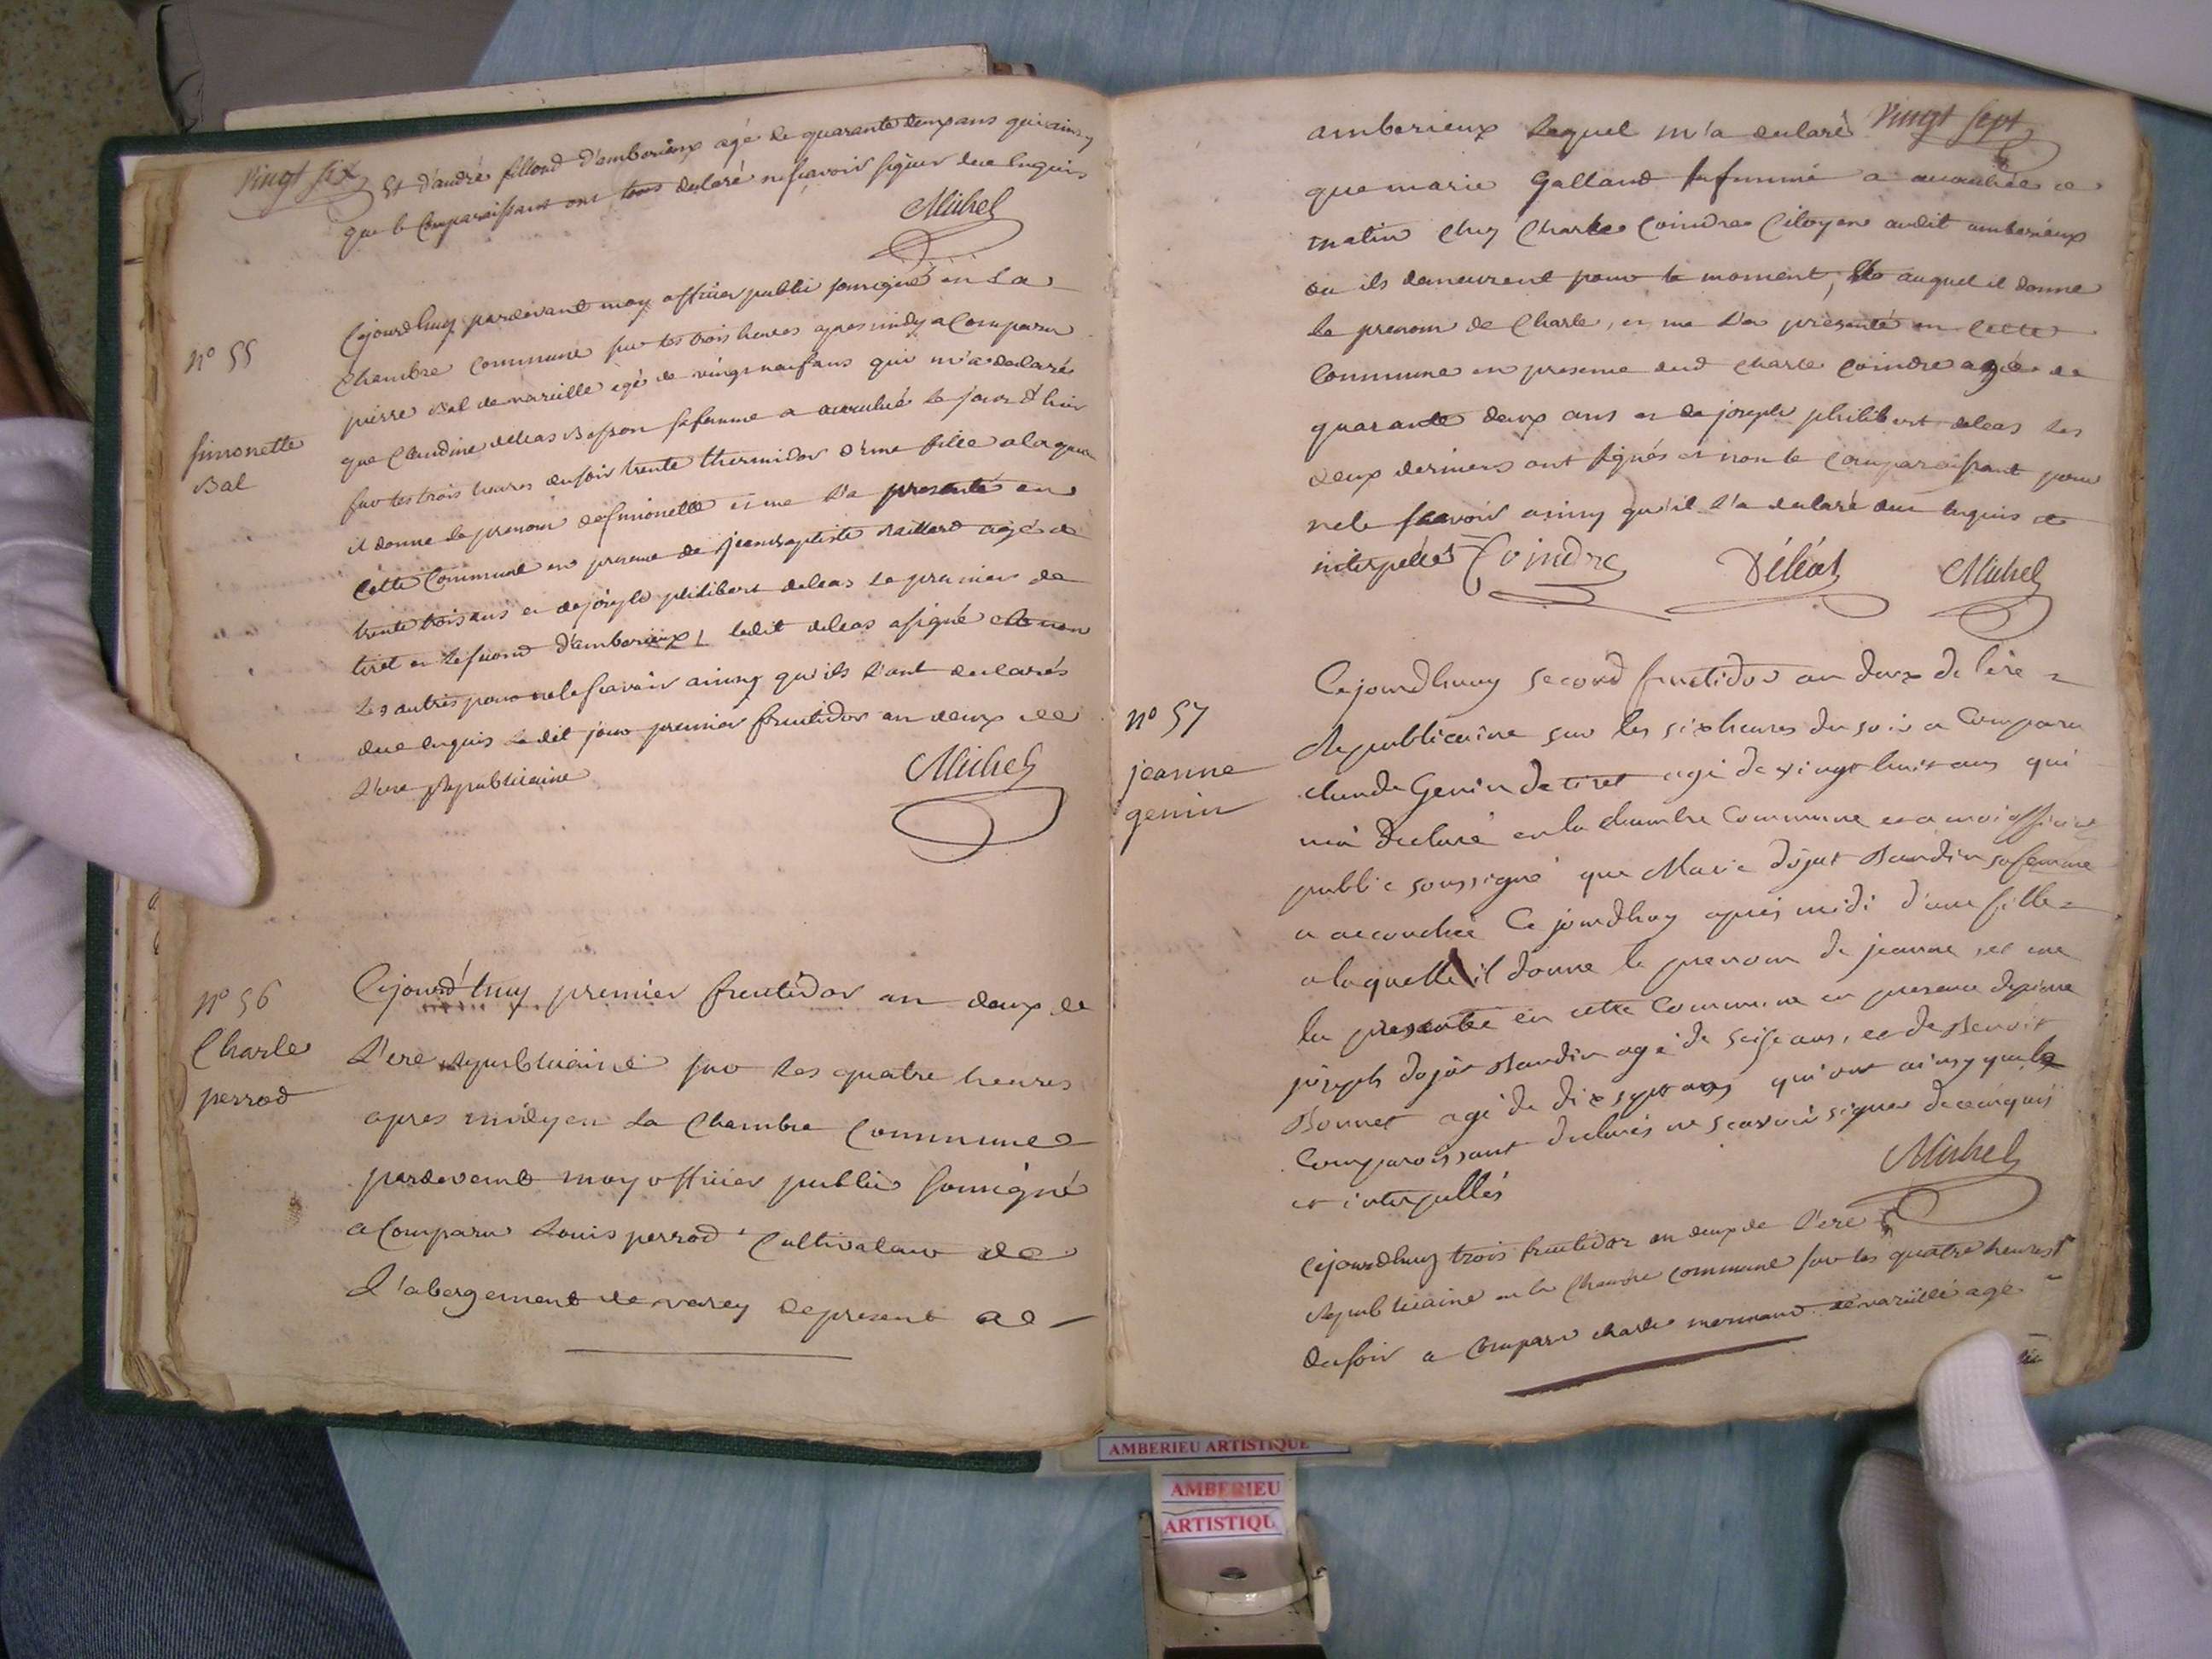 Vingt six
Et d'andré fillond d'amberieux agé de quarante deux ans qui ainsy
que le Comparaissant ont tous declaré ne sçavoir signer due enquis
Michel
n° 55
Simonette
Bal
Cejourdhuy pardevant moy officier public soussigné en la
Chambre Commune sur les trois heures apres midy a Comparu
pierre Bal de vareille agé de vingt neuf ans qui m'a declaré
que Claudine deleas Besson sa femme a accouché le jour d'hier
sur les trois heures du soir trente thermidor d'une fille a laquelle
il donne le prenom de simonette et me l'a presenté en
Cette Commune en presence de jean baptiste Raillard agé de
trente trois ans et de joseph philibert deleas le premier de
tiret et le second d'amberieux, ledit deleas a signé et non
les autres pour ne le sçavoir ainsy qu'ils l'ont declarés
due enquis ledit jour premier fructidor an deux de
l'ere Republicaine
Michel
n° 56
Charle
perrod
Cejourd'huy premier fructidor an deux de
l'ere Republicaine sur les quatre heures
apres midy en la Chambre Commune
pardevent moy officier public soussigné
a Comparu Louis perrod Cultivateur de
l'abergement de varey de present a
Vingt sept
amberieux lequel m'a declaré
que marie Galland sa femme a accouchée ce
matin chez Charle Coindre Citoyen audit amberieux
ou ils demeurent pour le moment, auquel il donne
le prenom de Charle, et me l'a presenté en Cette
Commune en presence dud Charle Coindre agé de
quarante deux ans et de joseph philibert deleas les
deux derniers ont signés et non le Comparaissant pour
ne le sçavoir ainsy qu'il l'a declaré due enquis et
interpellés Coindre Déléas Michel
n° 57
jeanne
genin
Cejourdhuy second fructidor an deux de l'ère
Republicaine sur les six heures du soir a Comparu
claude Genin de tiret agé de vingt huit ans qui
m'a declaré en la chambre Commune et a moi officier
public soussigné que Marie dujat Baudin sa femme
a accouchée Ce jourdhuy apres midi d'une fille
a laquelle il donne le prenom de jeanne, et me
la presentée en cette Commune en presence de pierre
joseph dujat Baudin agé de seise ans, et de Benoit
Bonnet agé de dix sept ans qui ont ainsy que le
Comparoissant declarés ne scavoir signer de ce enquis
et interpellés
Michel
Cejourdhuy trois fructidor an deux de l'ere
Republicaine en la Chambre Commune sur les quatre heures
du soir a Comparu charle mermand de vareille agé
AMBERIEU ARTISTIQUE
AMBERIEU
ARTISTIQU